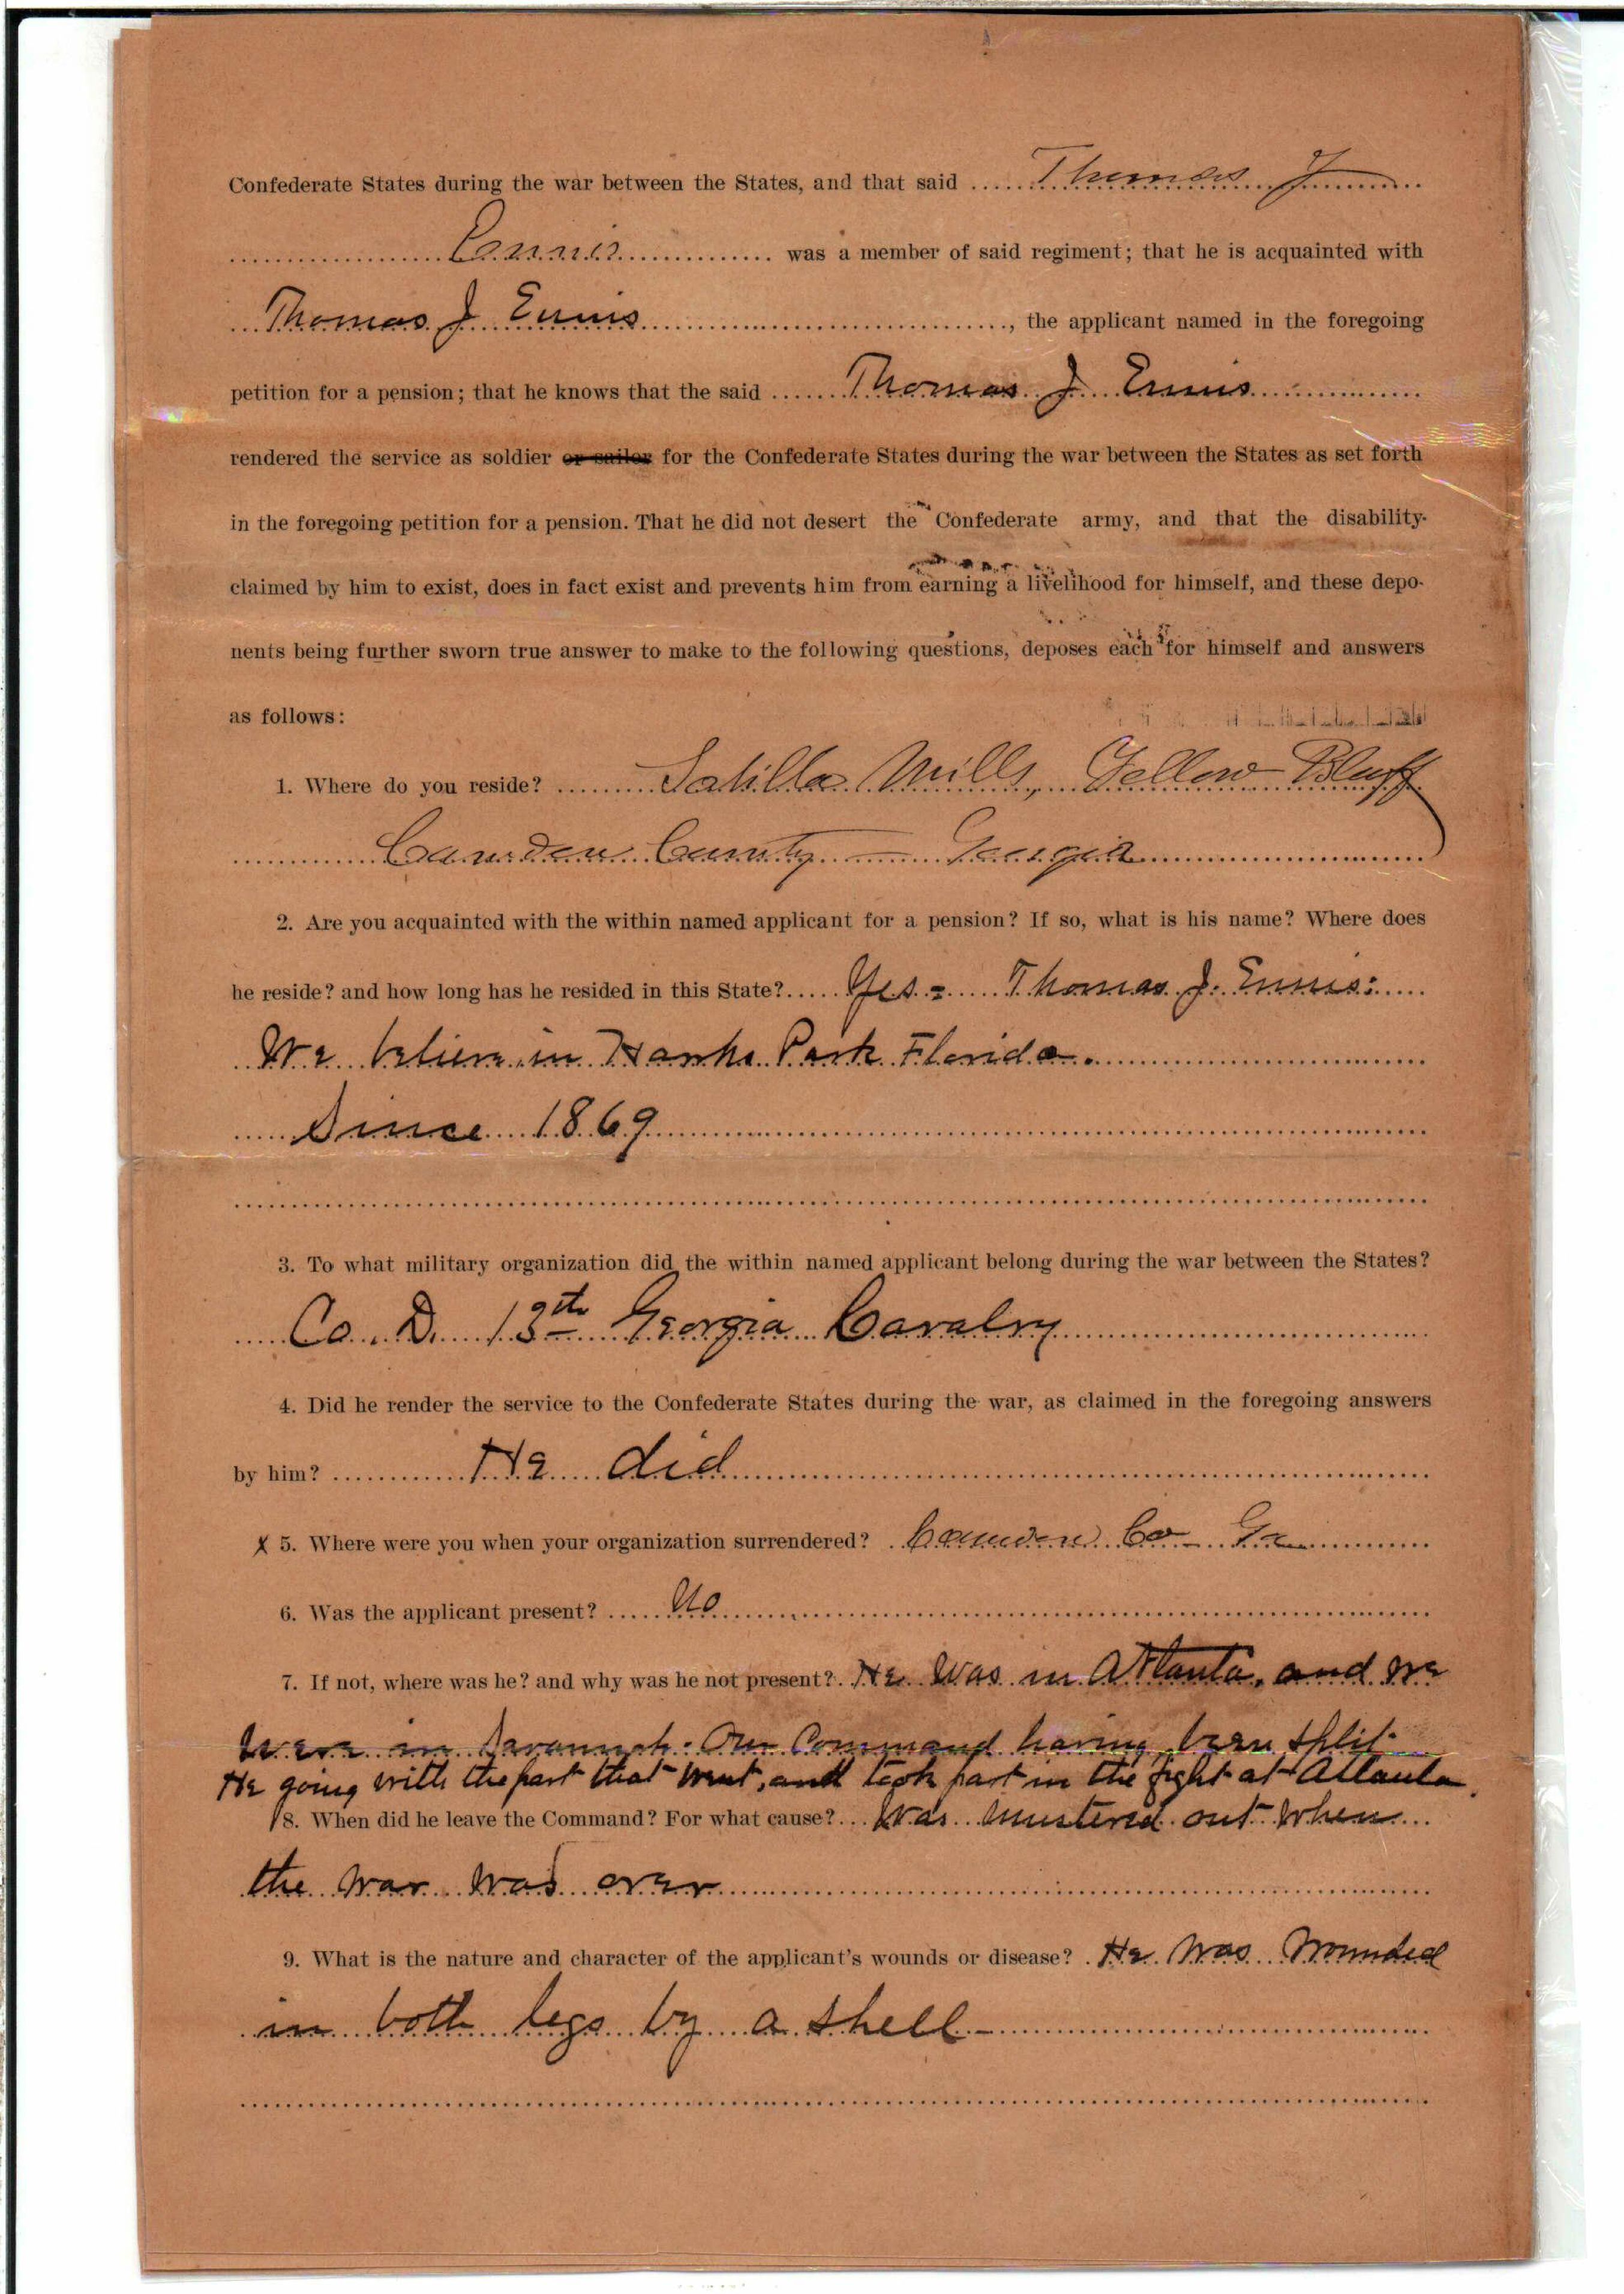 Confederate States during the war between the States, and that said Thomas J
Ennis was a member of said regiment; that he is acquainted with
Thomas J Ennis, the applicant named in the foregoing
petition for a pension; that he knows that the said Thomas J Ennis
rendered the service as soldier or sailor for the Confederate States during the war between the States as set forth
in the foregoing petition for a pension. That he did not desert the Confederate army, and that the disability
claimed by him to exist, does in fact exist and prevents him from earning a livelihood for himself, and these depo-
nents being further sworn true answer to make to the following questions, deposes each for himself and answers
as follows:
1. Where do you reside? Satilla Mills, Yellow Bluff
Camden County — Georgia
2. Are you acquainted with the within named applicant for a pension? If so, what is his name? Where does
he reside? and how long has he resided in this State? Yes - Thomas J. Ennis:
We believe in Hanks Park Florida.
Since 1869
3. To what military organization did the within named applicant belong during the war between the States?
Co. D. 13th Georgia Cavalry
4. Did he render the service to the Confederate States during the war, as claimed in the foregoing answers
by him? He did
x 5. Where were you when your organization surrendered? Camden Co - Ga
6. Was the applicant present? No
7. If not, where was he? and why was he not present? He was in Atlanta, and we
were in Savannah. Our Command having been split
He going with the part that went, and took part in the fight at Atlanta.
8. When did he leave the Command? For what cause? Was mustered out when
the war was over
9. What is the nature and character of the applicant's wounds or disease? He was wounded
in both legs by a shell -